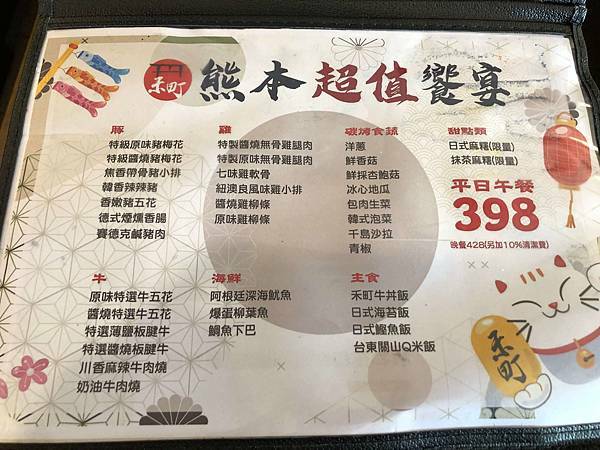 禾町 熊本超值饗宴
豚
特級原味豬梅花
特級醬燒豬梅花
焦香帶骨豬小排
韓香辣辣豬
香嫩豬五花
德式煙燻香腸
賽德克鹹豬肉
雞
特製醬燒無骨雞腿肉
特製原味無骨雞腿肉
七味雞軟骨
紐澳良風味雞小排
醬燒雞柳條
原味雞柳條
碳烤食蔬
洋蔥
鮮香菇
鮮採杏鮑菇
冰心地瓜
包肉生菜
韓式泡菜
千島沙拉
青椒
甜點類
日式麻糬(限量)
抹茶麻糬(限量)
平日午餐
398
晚餐428(另加10%清潔費)
牛
原味特選牛五花
醬燒特選牛五花
特選薄鹽板腱牛
特選醬燒板腱牛
川香麻辣牛肉燒
奶油牛肉燒
海鮮
阿根廷深海魷魚
爆蛋柳葉魚
鯛魚下巴
主食
禾町牛丼飯
日式海苔飯
日式鰹魚飯
台東關山Q米飯
禾町